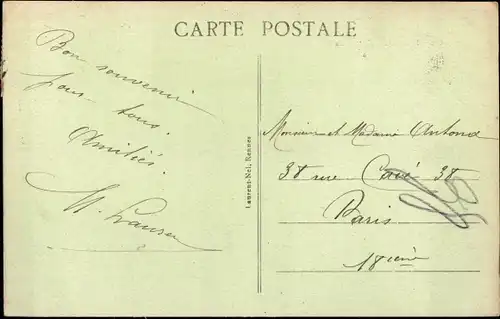 CARTE POSTALE
Bon souvenir
pour tous.
Amitiés.
Laurent-Nel, Rennes
Monsieur et Madame Antona
38 rue Cavé 38
Paris
18ième